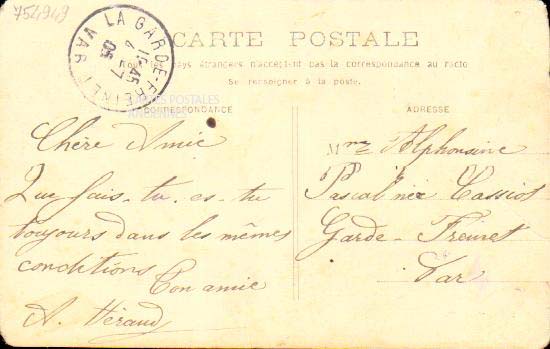 754949
LA GARDE-FREINET
VAR
16 45
4 -7
05
CARTE POSTALE
pays étrangers n'acceptent pas la correspondance au recto
Se renseigner à la poste.
CARTES POSTALES
ANCIENNES
CORRESPONDANCE
Chère Amie
Que fais-tu es-tu
toujours dans les mêmes
conditions
Ton amie
A. Héraud
ADRESSE
Mme Alphonsine
Pascal née Cassiot
Garde-Freinet
Var